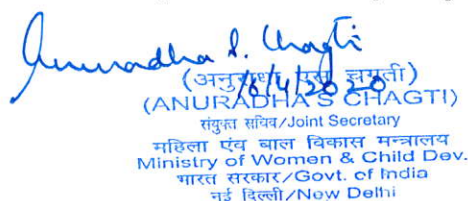 Anuradha S. Chagti
16/4/2020
(अनुराधा एस चगती)
(ANURADHA S CHAGTI)
संयुक्त सचिव/Joint Secretary
महिला एंव बाल विकास मन्त्रालय
Ministry of Women & Child Dev.
भारत सरकार/Govt. of India
नई दिल्ली/New Delhi